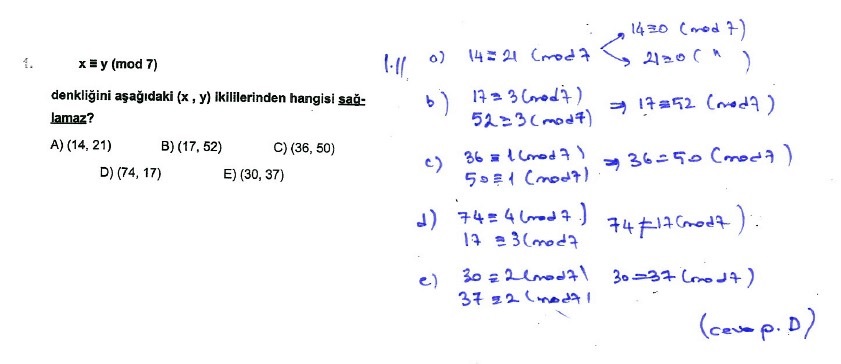 1. x ≡ y (mod 7)
denkliğini aşağıdaki (x , y) ikililerinden hangisi sağ-
lamaz?
A) (14, 21) B) (17, 52) C) (36, 50)
D) (74, 17) E) (30, 37)
1·11 a) 14 ≡ 21 (mod 7
14 ≡ 0 (mod 7)
21 ≡ 0 ( " )
b) 17 ≡ 3 (mod 7)
52 ≡ 3 (mod 7) ⇒ 17 ≡ 52 (mod 7)
c) 36 ≡ 1 (mod 7)
50 ≡ 1 (mod 7) ⇒ 36 = 50 (mod 7)
d) 74 ≡ 4 (mod 7)
17 ≡ 3 (mod 7 74 ≠ 17 (mod 7)
e) 30 ≡ 2 (mod 7) 30 = 37 (mod 7)
37 ≡ 2 (mod 7)
(cevap. D)